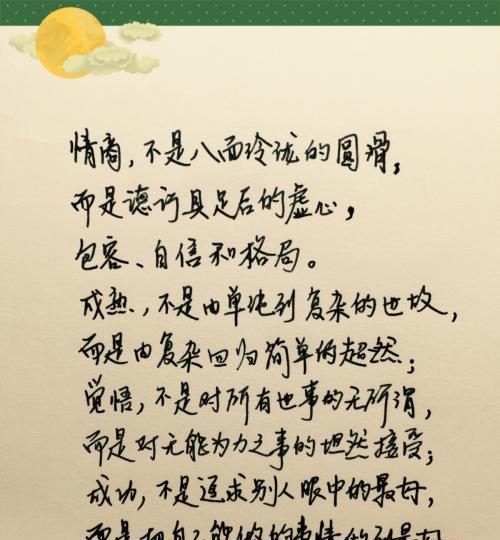 情商,不是八面玲珑的圆滑,
而是德行具足后的虚心,
包容、自信和格局。
成熟,不是由单纯到复杂的世故,
而是由复杂回归简单的超然;
觉悟,不是对所有世事的无所谓,
而是对无能为力之事的坦然接受;
成功,不是追求别人眼中的最好,
而是把自己能做的事情做到最好